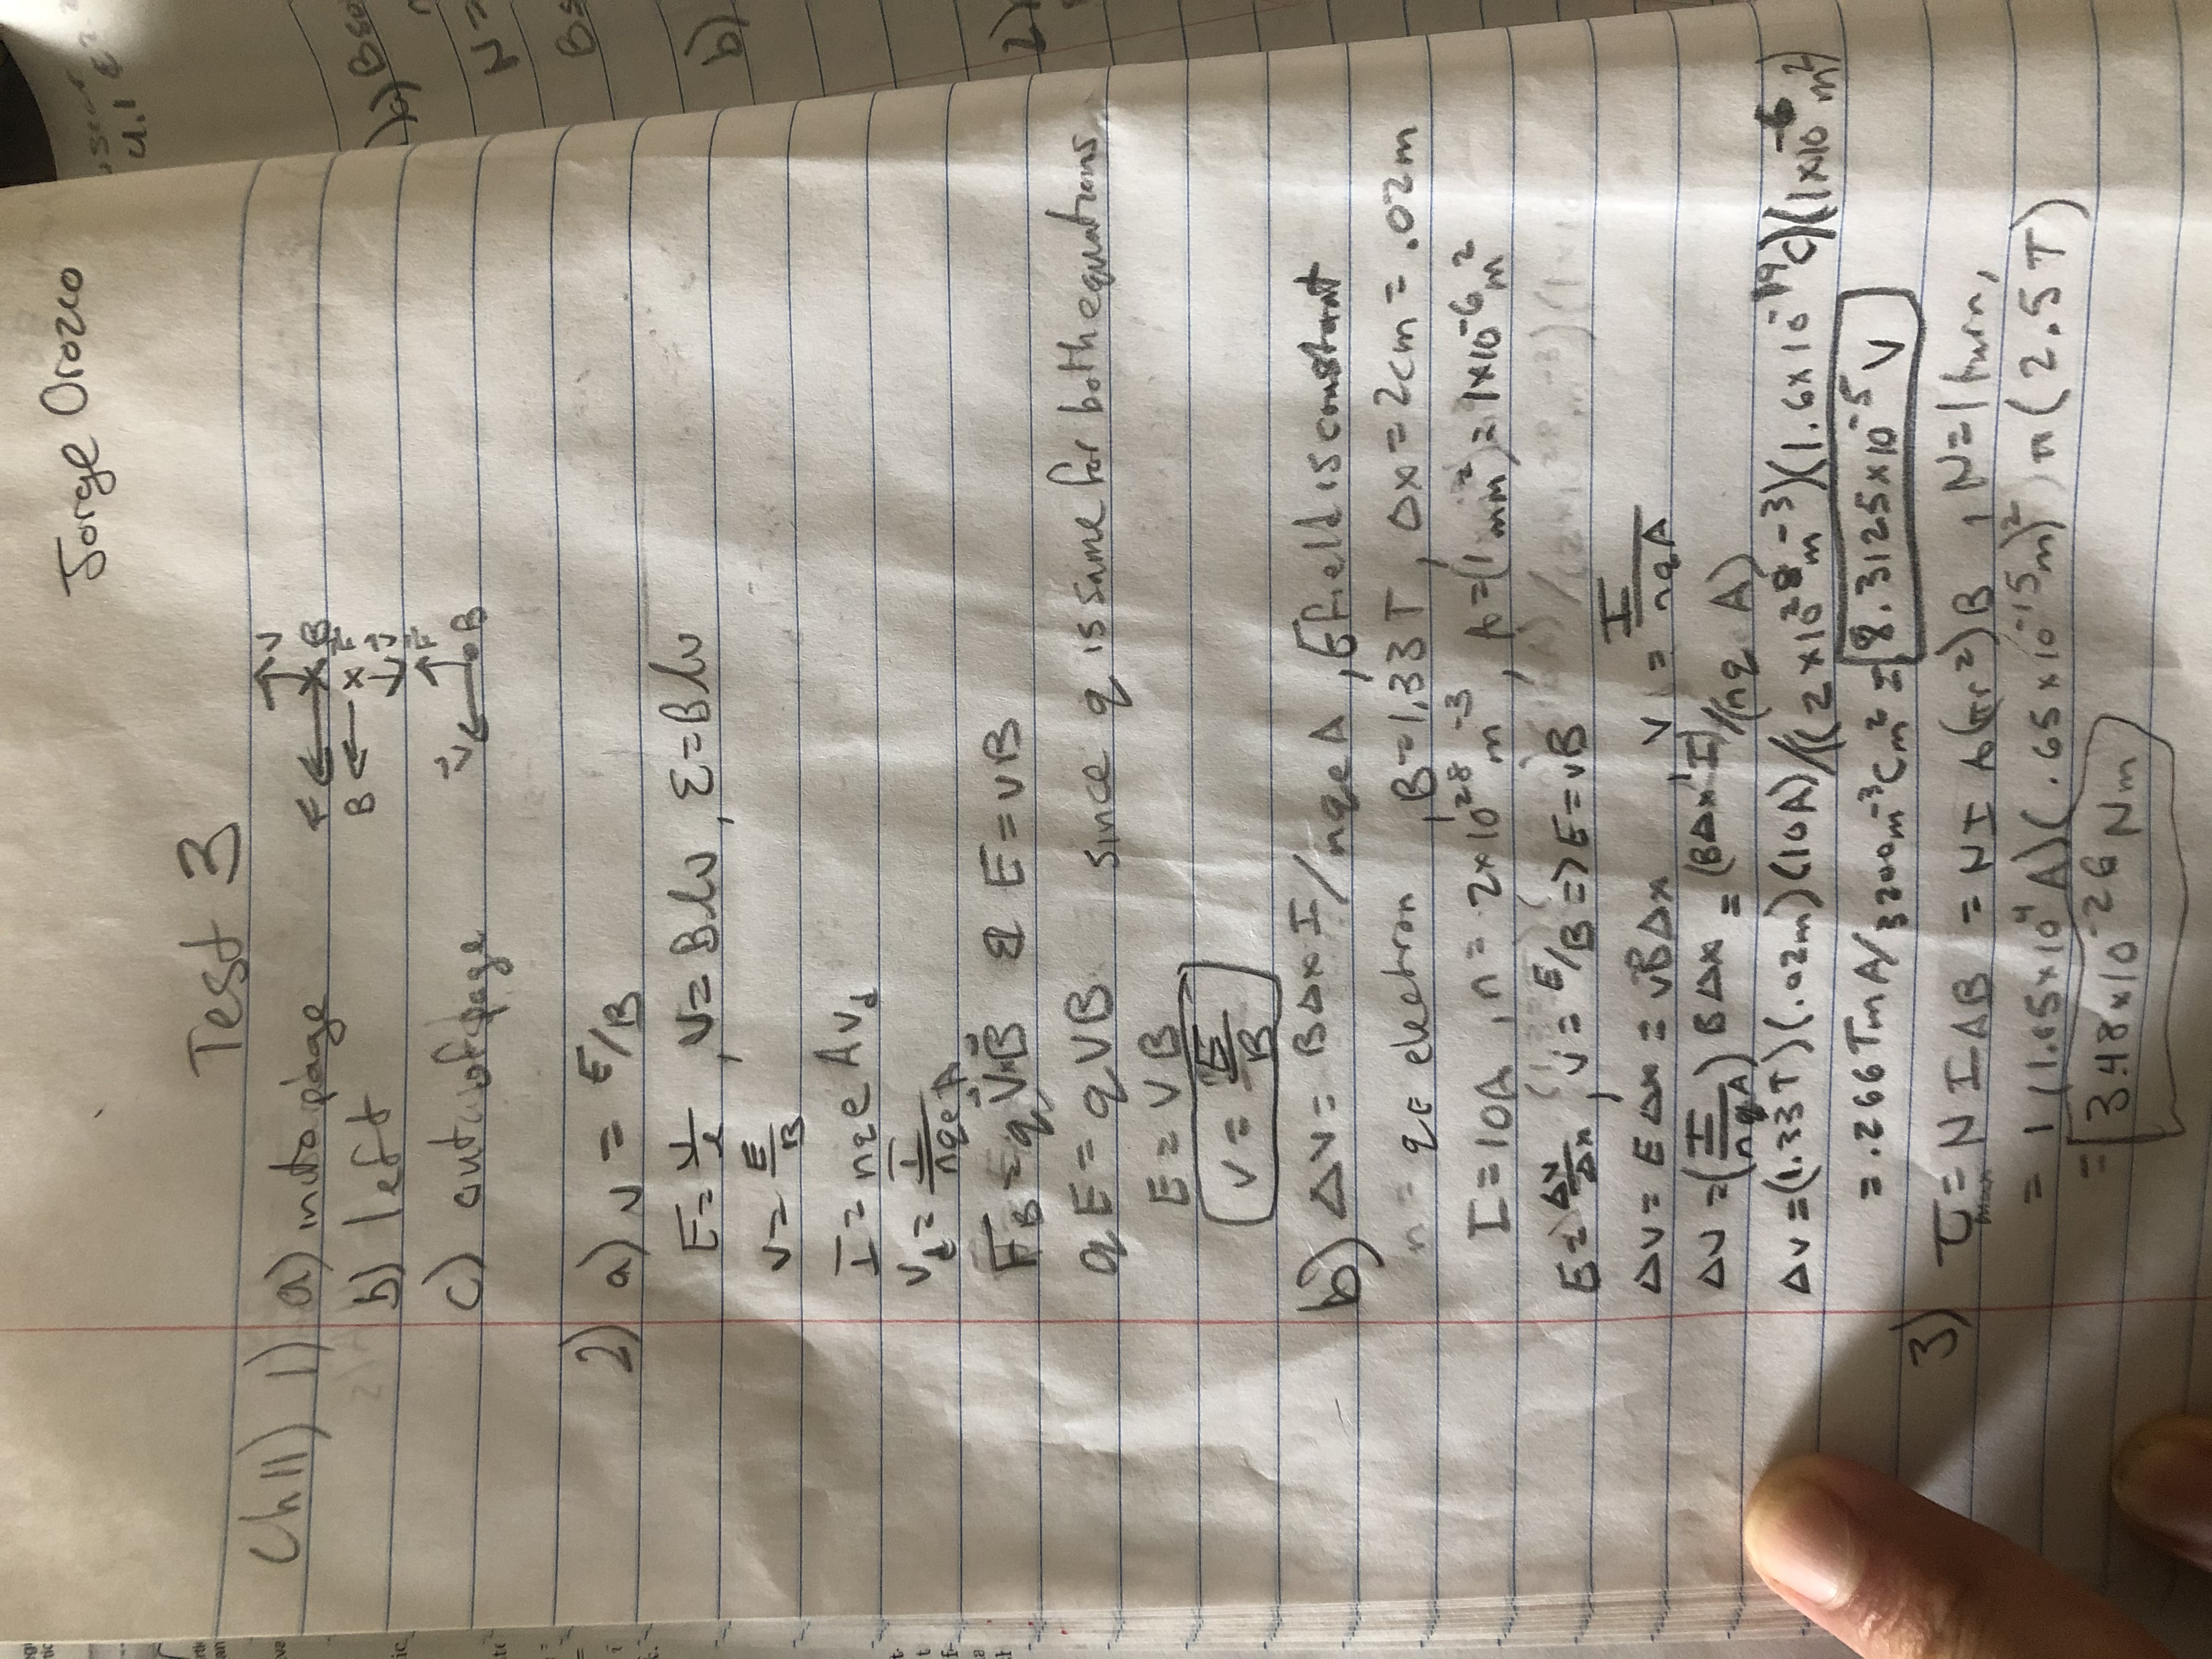 Jorge Orozco
Test 3
Ch 11) 1) a) into page F ← X B ↑ V
b) left B ← x F ↓ V
c) out of page V⃗ ← • B ↑ F
2) a) v = E/B
E = V/l , V = Blv , ε = Blv
v = E/B
I = nqe A v_d
v_d = I/nqeA
F_B = q V⃗×B⃗ & E = vB
qE = qVB since q is same for both equations
E = VB
v = E/B
b) ΔV = BΔxI/nqeA , E field is constant
n = qE electron , B = 1.33T , Δx = 2cm = .02m
I = 10A , n = 2×10^28 m^-3 , A = (1 mm^2) = 1×10^-6 m^2
E = ΔV/Δx , v = E/B => E = vB
ΔV = EΔx = vBΔx , v = I/nqA
ΔV = (I/nqA) BΔx = (BΔx I)/(nq A)
ΔV = (1.33T)(.02m)(10A)/((2×10^28 m^-3)(1.6×10^-19 C)(1×10^-6 m^2)
= .266 TmA/3200 m^-3 C m^2 = 8.3125×10^-5 V
3) τ_max = NIAB = NI A(πr^2)B , N = 1 turn,
= 1 (1.05×10^4 A)(.65×10^-15 m)^2 π (2.5T)
= 3.48×10^-26 Nm
4.1
)a) Bso
N =
B=
b)
2)